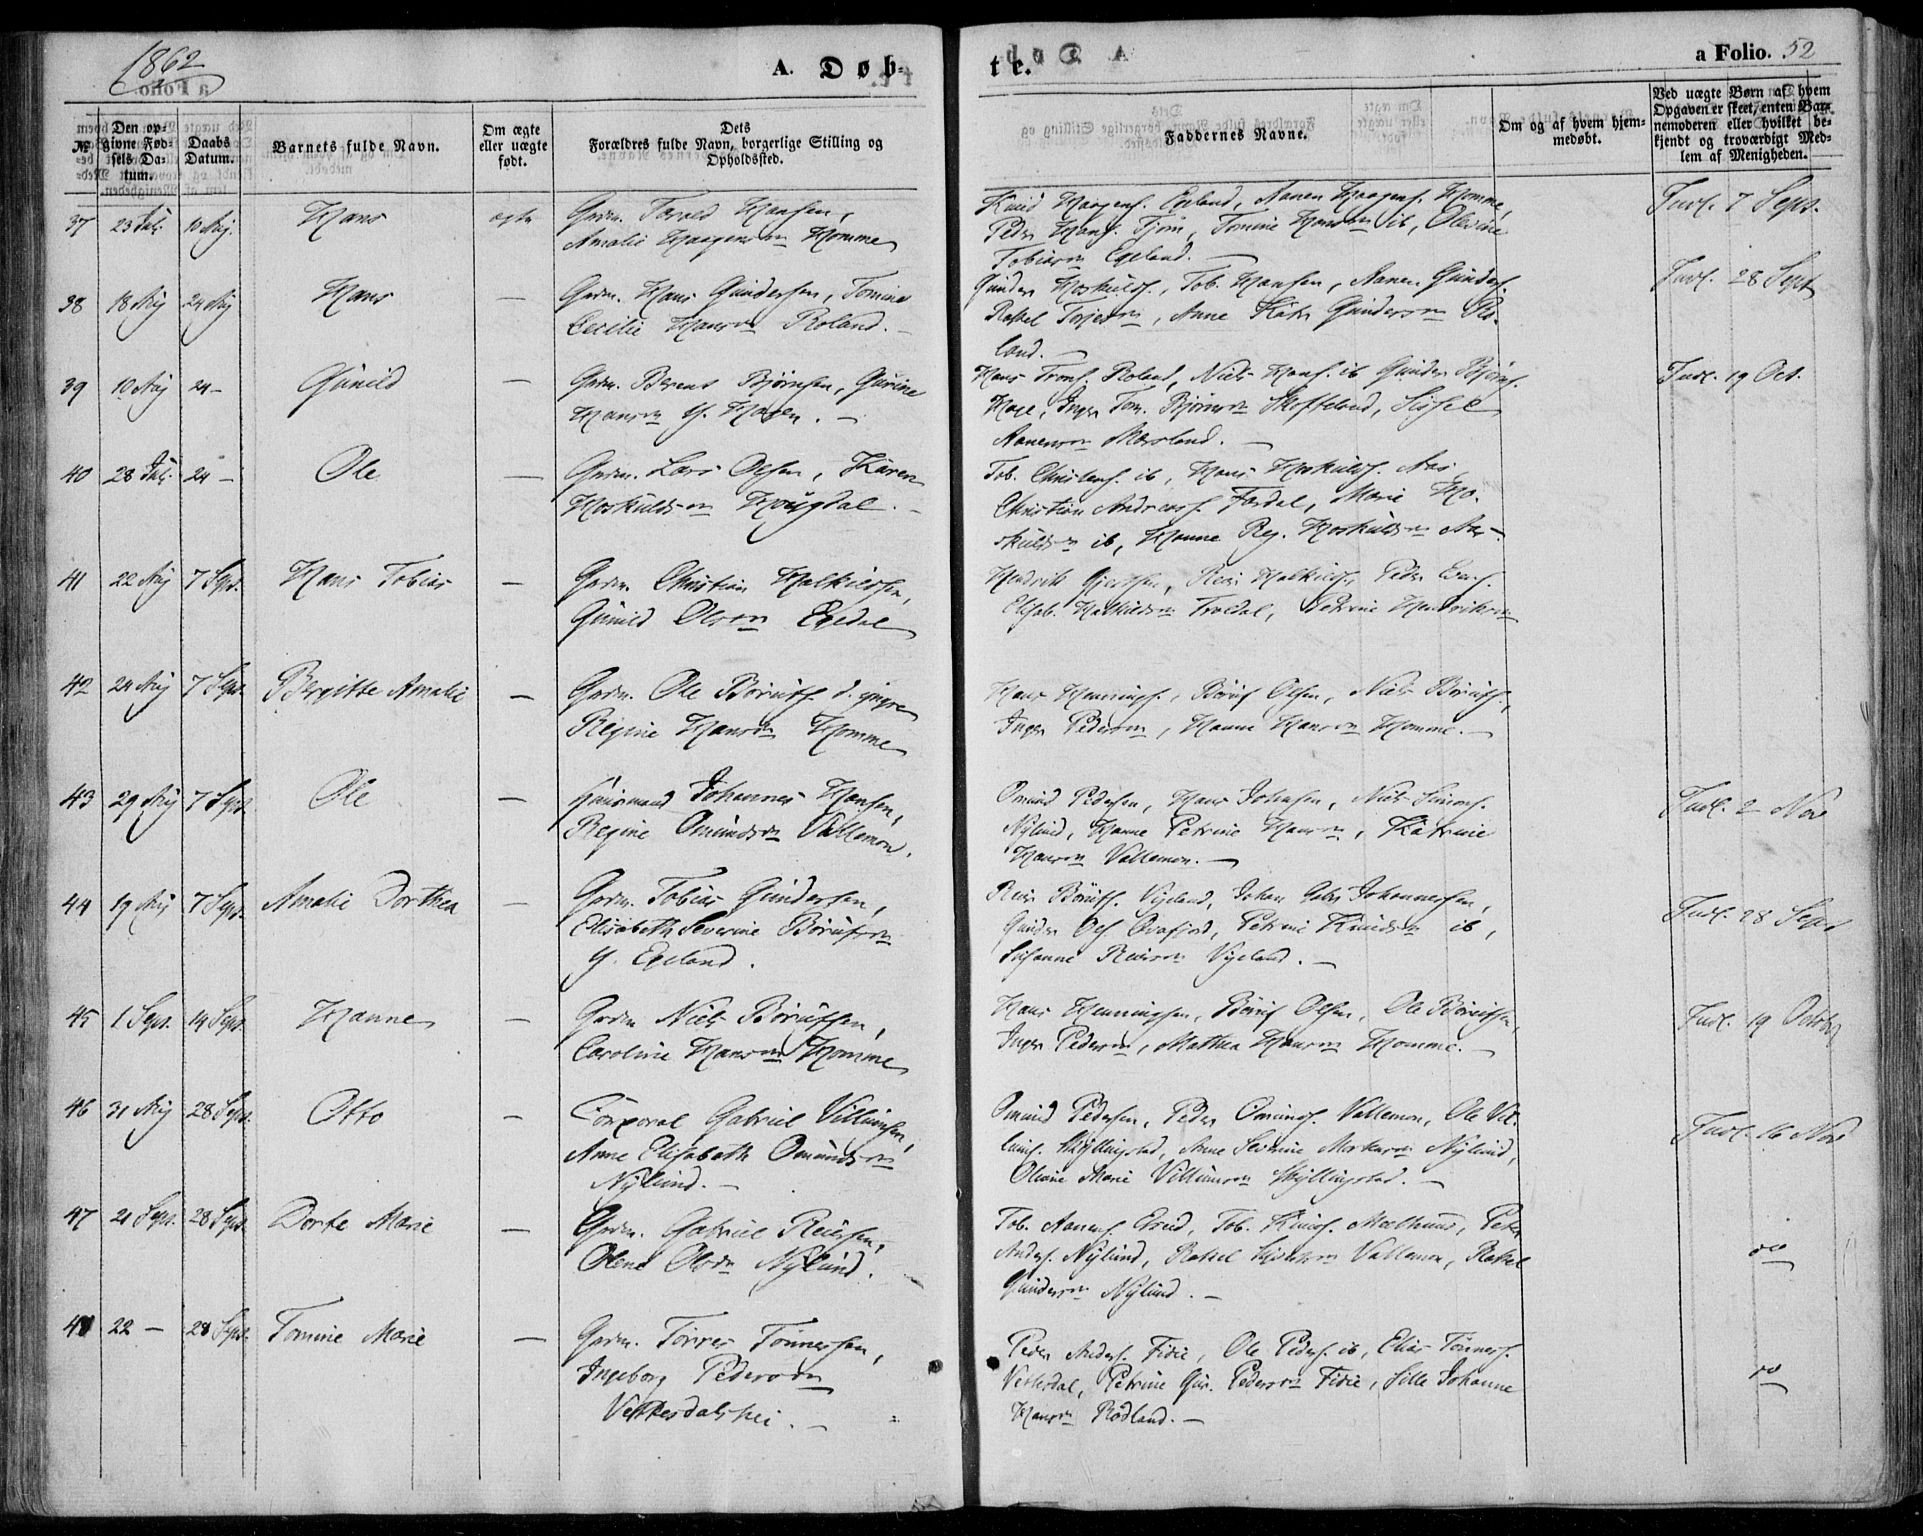 1862
A. Døb-
te.
a Folio. 52
№
Den opgivne Fødsels Datum.
Daabs Datum.
Barnets fulde Navn.
Om ægte eller uægte født.
Dets Forældres fulde Navn, borgerlige Stilling og Opholdssted.
Faddernes Navne.
Om og af hvem hjemmedøbt.
Ved uægte Børn af hvem Opgaven er skeet, enten Barnemoderen eller hvilket bekjendt og troværdigt Medlem af Menigheden.
37 23 Juli 10 Aug. Hans ægte Gdm. Torald Hansen,
Amalie Haagensdn Homme
Knud Haagens. Egeland, Aanen Haagens. Homme,
Peder Hans. Fjom, Tomine Hansdn ib, Olevine
Tobiasdn Egeland. —
Indl. 7 Sept.
38 18 Aug 24 Aug Hans — Gdm. Hans Gundersen, Tomine
Cecilie Hansdn Roland. —
Gunder Hoskulds., Tob. Hansen, Aanen Gunders.
Rakel Torjesdn, Anne Kath. Gundersdn Ro-
land. —
Indl. 28 Sept
39 10 Aug 24 — Gunild — Gdm. Berent Bjørnsen, Gurine
Hansdn Y. Haaen. —
Hans Trons. Roland, Niels Hans. ib Gunder Bjørns.
Haae, Inger Tom. Bjørnsdn Skofteland, Sissel
Aanensdn Møesland. —
Indl. 19 Oct.
40 28 Juli 24 — Ole — Gdm. Lars Olsen, Karen
Hoskuldsdn Hougdal. —
Tob. Christens. ib, Hans Hoskulds. Aas,
Christian Andreas. Fardal, Marie Ho-
skuldsdn ib, Hanne Reg. Hoskuldsdn Aas. —
41 22 Aug 7 Sept. Hans Tobias — Gdm. Christian Halkildsen,
Gunild Olsdn Egedal
Hendrik Gjertsen, Reier Halkilds., Peder Evens.
Elisab. Halkildsdn Troldal, Petrine Hendriksdn
42 24 Aug 7 Sept. Bergitte Amalie — Gdm. Ole Børufs. d. yngre
Regine Hansdn Homme
Hans Hennings., Børuf Olsen, Niels Børufs.,
Inger Pedersdn, Hanne Hansdn Homme. —
43 29 Aug 7 Sept. Ole — Huusmand Johannes Hansen,
Regine Omundsdn Vallemon.
Omund Pedersen, Hans Johnsen, Niels Simons.
Nylund, Hanne Petrine Hansdn, Katrine
Hansdn Vallemon. —
Indl. 2 Nov
44 19 Aug 7 Sept. Amalie Dorthea — Gdm. Tobias Gundersen,
Elisabeth Severine Børufsdn
Y. Egeland.
Reier Børufs. Vigeland, Johan Gabr. Johannessen,
Gunder Ols. Ovafjord, Petrine Knudsdn ib,
Susanne Reiersdn Vigeland. —
Indl. 28 Sept
45 1 Sept. 14 Sept. Hanne — Gdm Niels Børufsen,
Caroline Hansdn Homme
Hans Henningsen, Børuf Olsen, Ole Børufsen,
Inger Pedersdn, Mathea Hansdn Homme. —
Indl. 19 October
46 31 Aug 28 Sept. Otto — Corporal Gabriel Villumsen,
Anne Elisabeth Omundsdn
Nylund. —
Omund Pedersen, Peder Omunds. Vallemon, Ole Vil-
lums. Skyllingstad, Anne Severine Markusdn Nylund,
Oliane Marie Villumsdn Skyllingstad. —
Indl. 16 Nov
47 21 Sept. 28 Sept. Dorte Marie — Gdm. Gabriel Reiersen,
Olene Olsdn Nylund.
Tob. Aanens. Ered, Tob. Knuds. Moelhuus, Peter
Anders. Nylund, Rakel Hansdn Vallemon, Rakel
Gundersdn Nylund. —
do
48 22 — 28 Sept. Tomine Marie — Gdm. Torres Tønnessen,
Ingeborg Pedersdn
Vettesdalshei. —
Peder Anders. Fidie, Ole Peders. ib, Elias Tønnes.
Vettesdal, Petrine Gur. Pedersdn Fidie, Sille Johanne
Hansdn Rødland. —
do